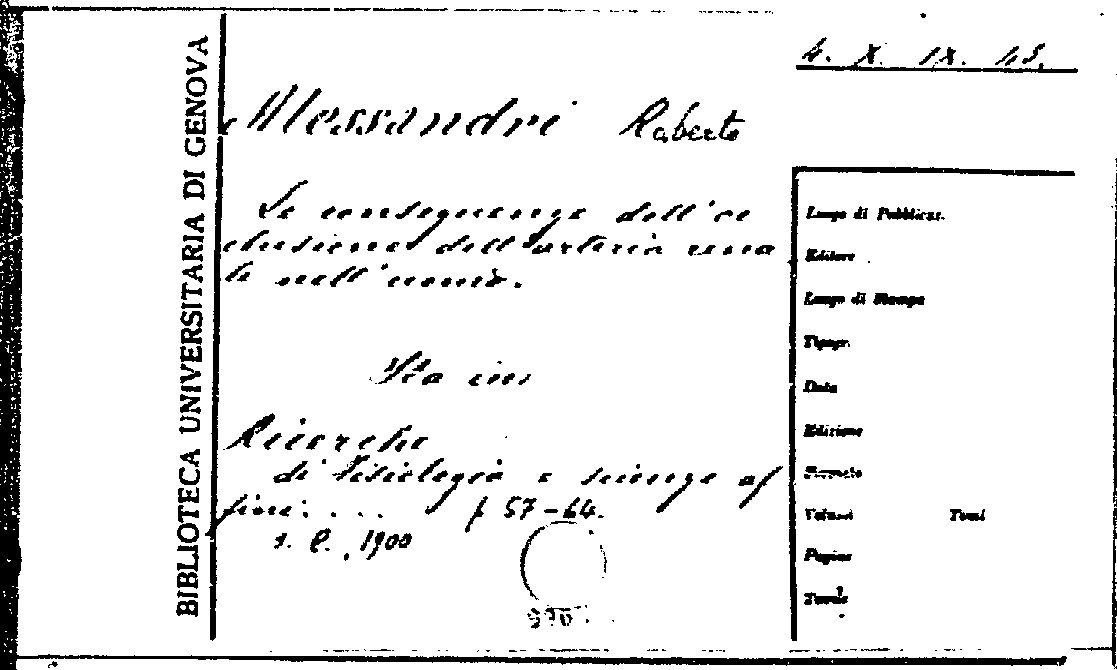 4. X. IX. 43.
BIBLIOTECA UNIVERSITARIA DI GENOVA
Alessandri Roberto
Le conseguenze dell'oc
clusione dell'arteria rena
le nell'uomo.
Sta in
Ricerche
di Fisiologia e scienze af
fini. . . . p 57-64.
s. l., 1900
Luogo di Pubblicaz.
Editore
Luogo di Stampa
Tipogr.
Data
Edizione
Formato
Volumi Tomi
Pagine
Tavole